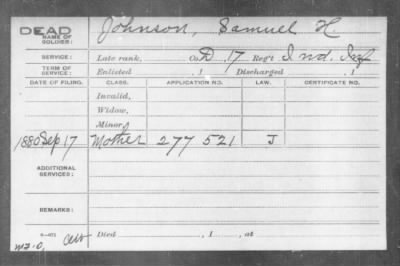 DEAD Johnson, Samuel H.
NAME OF SOLDIER:
SERVICE: Late rank, Co. D, 17 Reg't Ind. Inf
TERM OF SERVICE: Enlisted , 1 Discharged , 1
DATE OF FILING. CLASS. APPLICATION NO. LAW. CERTIFICATE NO.
Invalid,
Widow,
Minor,
1880 Sep 17 Mother 277 521 J
ADDITIONAL SERVICES:
REMARKS:
Died , 1 , at